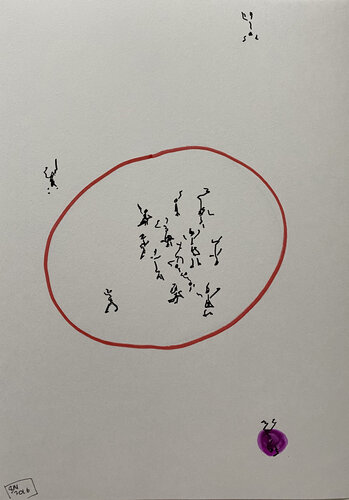 SN
2016